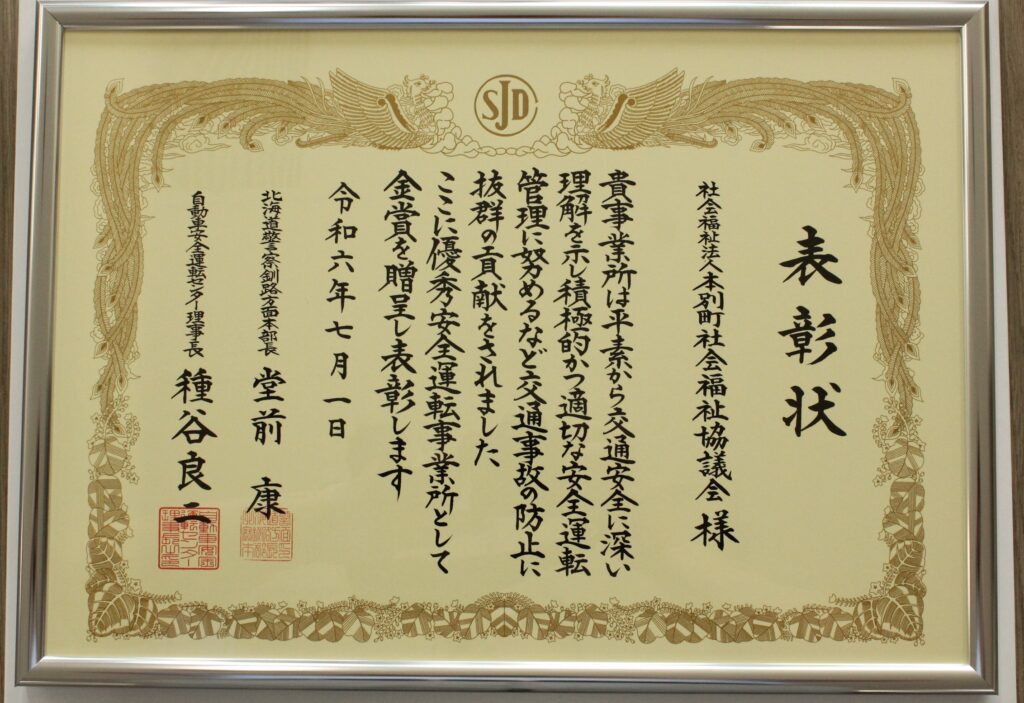 SJD
表彰状
社会福祉法人本別町社会福祉協議会様
貴事業所は平素から交通安全に深い
理解を示し積極的かつ適切な安全運転
管理に努めるなど交通事故の防止に
抜群の貢献をされました
ここに優秀安全運転事業所として
金賞を贈呈し表彰します
令和六年七月一日
北海道警察釧路方面本部長 堂前康
自動車安全運転センター理事長 種谷良二